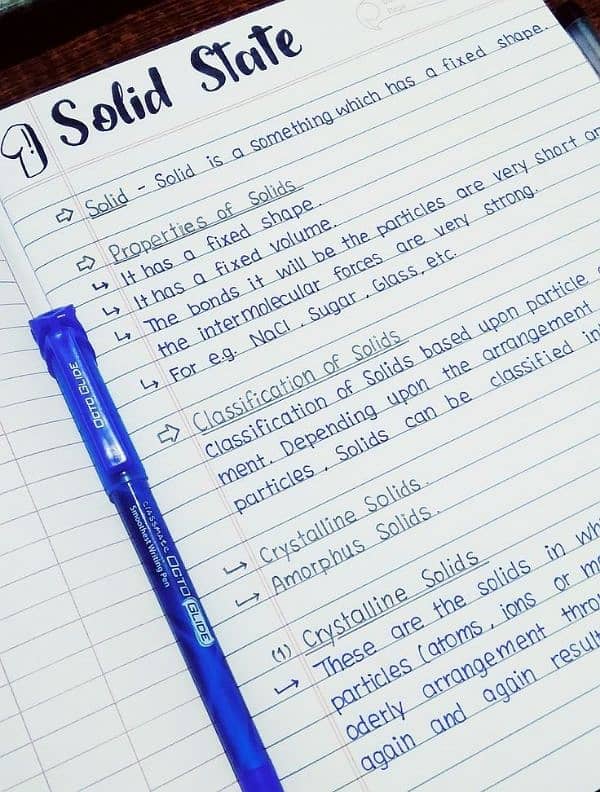 1) Solid State
⇨ Solid - Solid is a something which has a fixed shape.
⇨ Properties of Solids
↳ It has a fixed shape.
↳ It has a fixed volume.
↳ The bonds it will be the particles are very short an
the intermolecular forces are very strong.
↳ For e.g. NaCl, Sugar, Glass, etc.
⇨ Classification of Solids
Classification of Solids based upon particle
ment. Depending upon the arrangement
particles, Solids can be classified in
↳ Crystalline Solids.
↳ Amorphus Solids.
(1) Crystalline Solids
↳ These are the solids in whi
particles (atoms, ions or mo
oderly arrangement thro
again and again result
OCTO GLIDE
CLASSMATE OCTO GLIDE
Smoothest Writing Pen